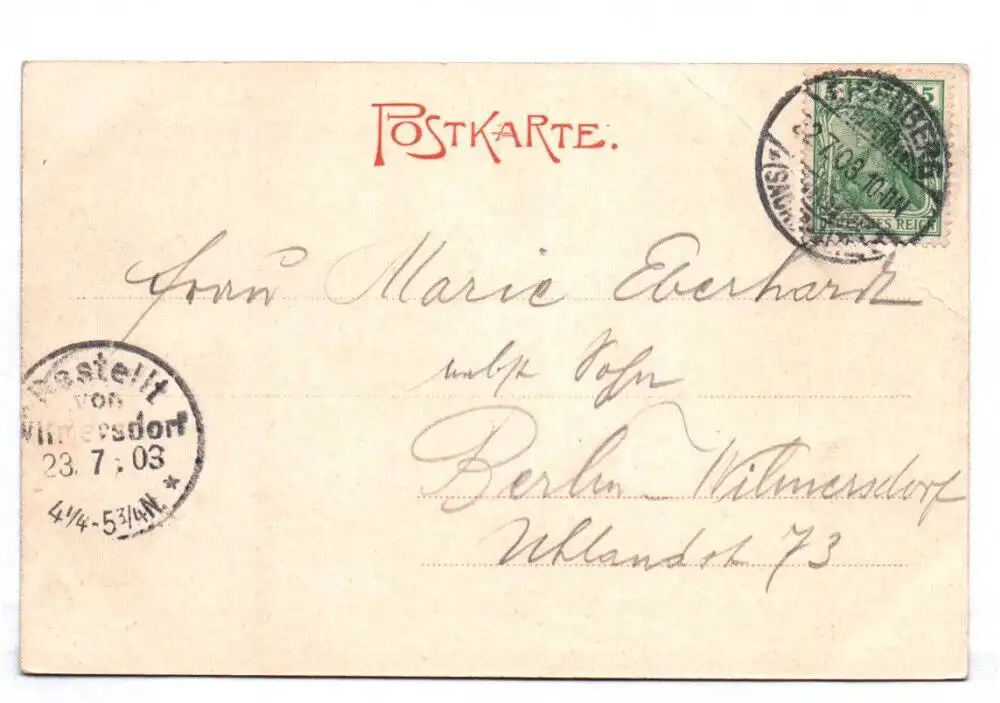 POSTKARTE.
5
EISENBERG
22.7.03. 10-11N
REICH
Frau Marie Eberhardt
nebst Sohn
Berlin-Wilmersdorf
Uhlandst 73
Bestellt
von
Wilmersdorf
23. 7. 03
4 1/4-5 3/4N.
*